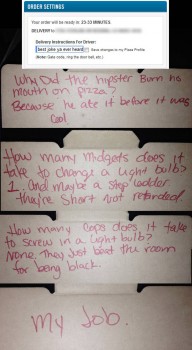 ORDER SETTINGS
Your order will be ready in: 23-33 MINUTES.
DELIVERY to:
Delivery Instructions For Driver:
best joke ya ever heard
Save changes to my Pizza Profile
(Note: Gate code, ring the door bell, etc.)
Why Did the hipster Burn his
mouth on pizza?
Because he ate it before it was
Cool.
How many midgets does it
take to change a light bulb?
1. And maybe a step ladder
they're short not retarded.
How many cops does it take
to screw in a light bulb?
None. They just beat the room
for being black.
My Job.